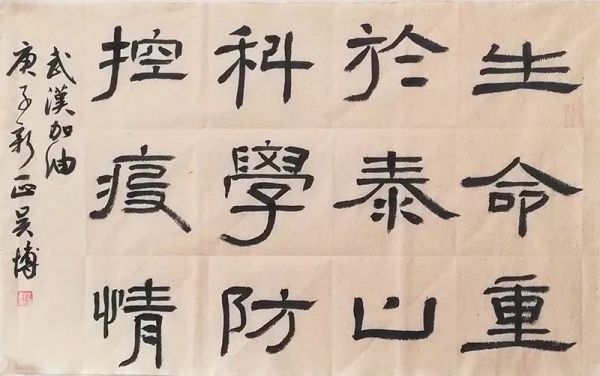 生命重
於泰山
科學防
控疫情
武漢加油
庚子新正吴博